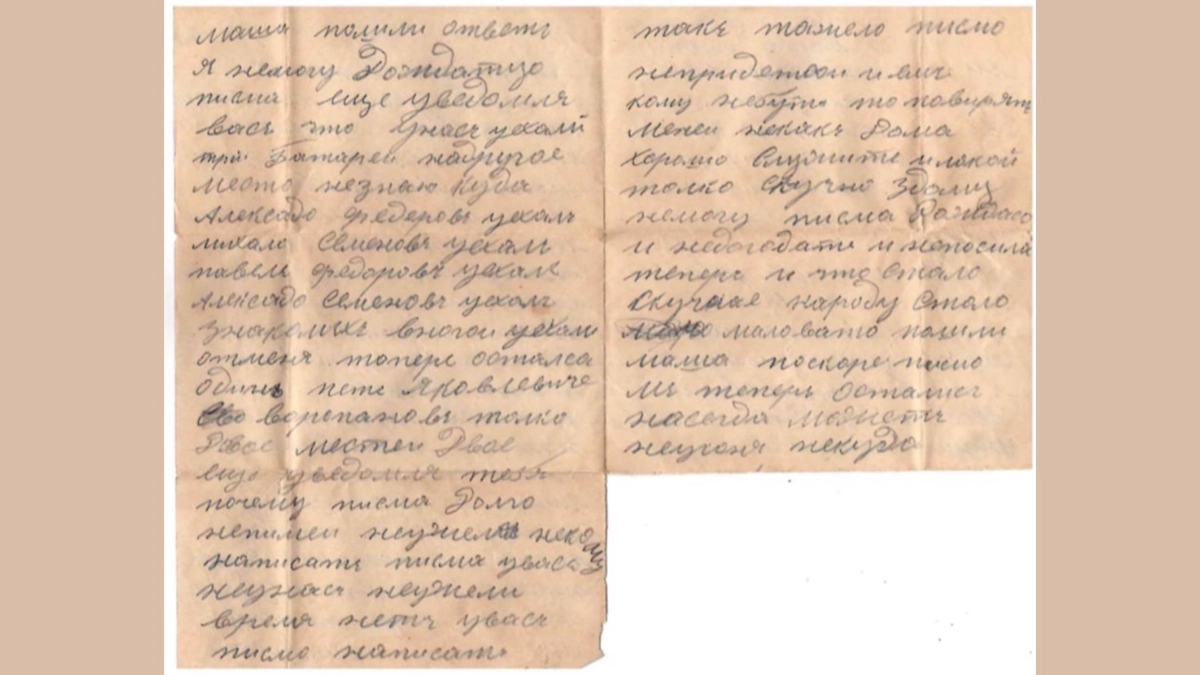 маша пошли ответъ
я немогу Дождатцо
писма еще уведомля
васъ что унасъ уехали
три Батареи надругое
место незнаю куда
Алексадо федеровъ уехалъ
михало Семеновъ уехалъ
павелъ федоровъ уехалъ
Алексадо Семеновъ уехалъ
знакомыхъ вногои уехали
отменя топере осталса
одинъ пете Яковлевиче
ворепановъ толко
Двое местеи Двое
еще уведомля тебя
почему писма Долго
непишеи неужели некому
написать писма увасъ
неужасъ неужели
время нетъ увасъ
писмо написать
такъ тажело писмо
непридетьои и емъ
кому небути то повирять
менеи некакъ Дома
хорошо Служите
толко Скучно
немогу писма Дождасо
и недогодати и
теперь и что Стало
Скучнае народу Стало
маловато пошли
маша поскоре писмо
мъ теперъ осталисъ
насегда можетъ
некуда